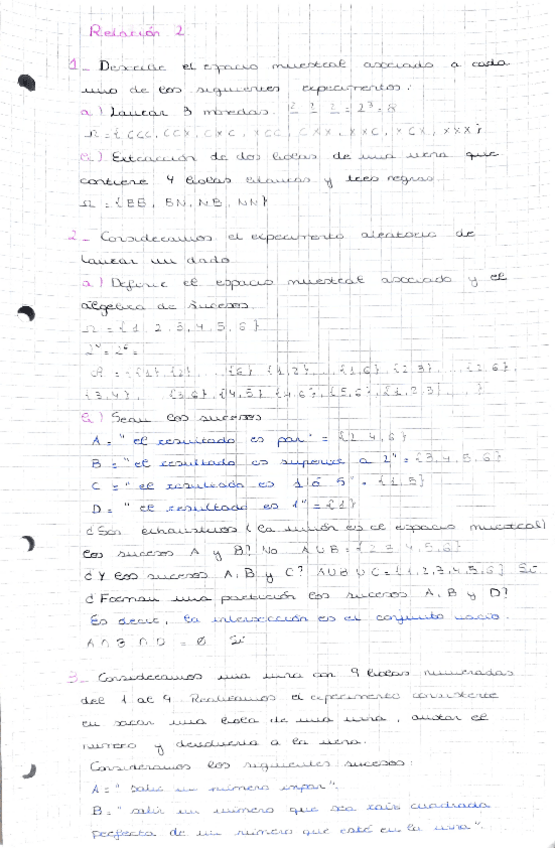 Relación 2
1- Describe el espacio muestral asociado a cada
uno de los siguientes experimentos:
a) Lanzar 3 monedas. 2 2 2 = 2³ = 8
Ω = {CCC, CCX, CXC, XCC, CXX, XXC, XCX, XXX}
b) Extracción de dos bolas de una urna que
contiene 4 bolas blancas y tres negras.
Ω = {BB, BN, NB, NN}
2- Consideramos el experimento aleatorio de
lanzar un dado
a) Define el espacio muestral asociado y el
álgebra de sucesos.
Ω = {1, 2, 3, 4, 5, 6}
{1} {2} ... {6} {1,2} ... {1,6} {2,3} ... {2,6},
{3,4}, ... {3,6} {4,5} {4,6} {5,6} {1,2,3} ... }
b) Sean los sucesos
A = "el resultado es par" = {2, 4, 6}
B = "el resultado es superior a 2" = {3, 4, 5, 6}
C = "el resultado es 1 ó 5" = {1, 5}
D = "el resultado es 1" = {1}
¿Son exhaustivos (la unión es el espacio muestral)
los sucesos A y B? No A∪B = {2, 3, 4, 5, 6}
¿Y los sucesos A, B y C? A∪B∪C = {1, 2, 3, 4, 5, 6} Si
¿Forman una partición los sucesos A, B y D?
Es decir, la intersección es el conjunto vacío.
A ∩ B ∩ D = Ø Si
3- Consideramos una urna con 9 bolas numeradas
del 1 al 9. Realizamos el experimento consistente
en sacar una bola de una urna, anotar el
número y devolverla a la urna.
Consideramos los siguientes sucesos:
A = "Salir un número impar".
B = "salir un número que sea raíz cuadrada
perfecta de un número que esté en la urna".